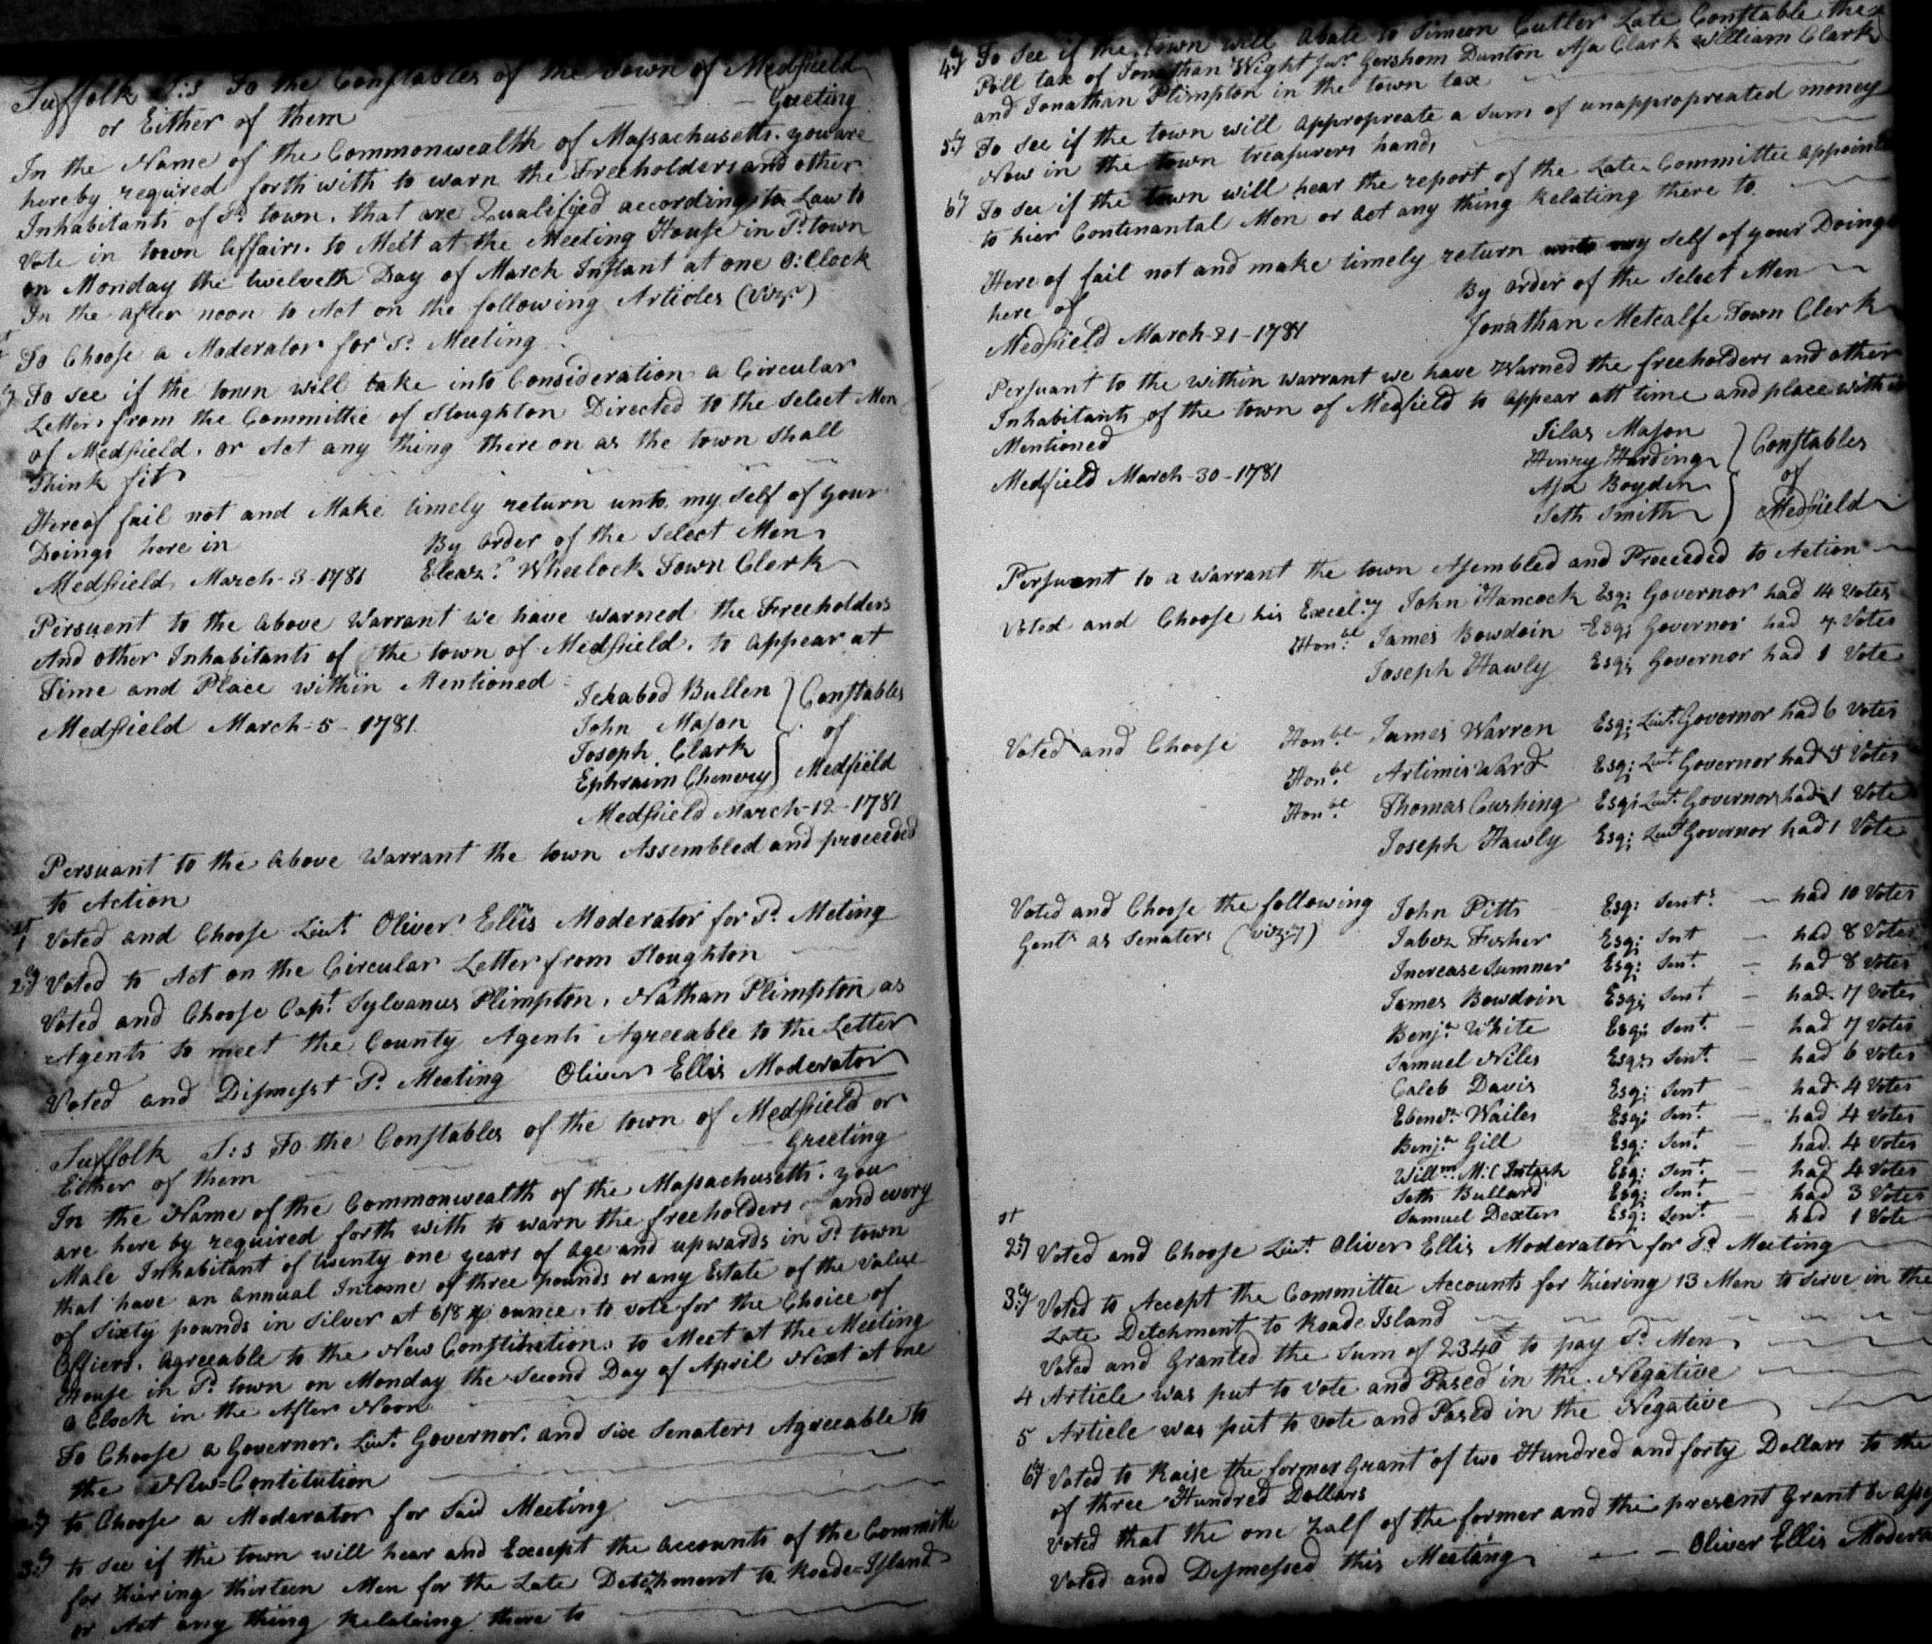 Suffolk S:s To the Constables of the Town of Medfield
or Either of them Greeting
In the Name of the Commonwealth of Massachusetts. you are
hereby required forthwith to warn the Freeholders and other
Inhabitants of Sd. town. that are Qualified according to Law to
Vote in town affairs. to Meet at the Meeting House in Sd. town
on Monday the twelveth Day of March Instant at one O:Clock
In the after noon to Act on the following Articles (Viz.)
To Choose a Moderator for Sd. Meeting
To see if the town will take into Consideration a Circular
Letter from the Committee of Stoughton Directed to the Select Men
of Medfield. or Act any thing there on as the town shall
Think fit
Hereof fail not and Make timely return unto my self of your
Doings here in By order of the Select Men
Medfield March-3-1781 Eleazr. Wheelock Town Clerk
Persuent to the above Warrant We have warned the Freeholders
And other Inhabitants of the town of Medfield. to appear at
Time and Place within Mentioned Ichabod Bullen } Constables
Medfield March-5-1781 John Mason of
Joseph Clark
Ephraim Chenery Medfield
Medfield March-12-1781
Persuant to the above Warrant the town Assembled and proceeded
to Action
1st Voted and Choose Liut. Oliver Ellis Moderator for Sd. Meting
2ly Voted to Act on the Circular Letter from Stoughton
Voted and Choose Capt. Sylvanus Plimpton, Nathan Plimpton as
Agents to meet the County Agents Agreeable to the Letter
Voted and Dismesst Sd. Meeting Oliver Ellis Moderator
Suffolk S:s To the Constables of the town of Medfield or
Either of them Greeting
In the Name of the Commonwealth of the Massachusetts. you
are here by required forth with to warn the freeholders and every
Male Inhabitant of twenty one years of Age and upwards in Sd. town
that have an annual Income of three pounds or any Estate of the value
of Sixty pounds in Silver at 6/8 ounce. to vote for the Choice of
Officers. agreeable to the New Constitution. to Meet at the Meeting
House in Sd. town on Monday the Second Day of April Next at one
o Clock in the After Noon
To Choose a Governor. Liut. Governor. and six Senators Agreeable to
the New=Contitution
2ly to Choose a Moderator for Said Meeting
3ly to see if the town will hear and Except the accounts of the Committe
for hiering thirteen Men for the Late Detchment to Roade=Island
or Act any thing Relateing there to
4ly To see if the town will abate to Simeon Cutler Late Constable the
Poll tax of Jonathan Wight Junr. Gershom Dunton Asa Clark William Clark
and Jonathan Plimpton in the town tax
5ly To see if the town will appropreate a sum of unappropreated money
Now in the town treasurers hands
6ly To see if the town will hear the report of the Late Committee appointed
to hier Contenantal Men or act any thing Relating there to.
Here of fail not and make timely return my self of your Doings
here of By order of the Select Men
Medfield March-21-1781 Jonathan Metcalfe Town Clerk
Persuant to the within warrant we have Warned the freeholders and other
Inhabitants of the town of Medfield to appear att time and place within
Mentioned Silas Mason } Constables
Medfield March-30-1781 Henry Harding of
Asa Boyden
Seth Smith Medfield
Persuent to a warrant the town Asembled and Proceeded to Action
Voted and Choose his Excel.y John Hancock Esq: Governor had 14 Votes
Hon.bl James Bowdoin Esq; Governor had 7 Votes
Joseph Hawly Esq; Governor had 1 Vote
Voted and Choose Hon.bl James Warren Esq; Liut. Governor had 6 Votes
Hon.bl Artimis Ward Esq; Liut. Governor had 5 Votes
Hon.bl Thomas Cushing Esq; Liut. Governor had 1 Vote
Joseph Hawly Esq; Liut Governor had 1 Vote
Voted and Choose the following John Pitts Esq: Sent.s had 10 Votes
Gent.s as Senaters (viz:y) Jabez Fisher Esq; Sent had 8 Votes
Increase Sumner Esq; Sent. had 8 Votes
James Bowdoin Esq; Sent. had 7 Votes
Benj.a White Esq; Sent. had 7 Votes
Samuel Niles Esq; Sent. had 6 Votes
Caleb Davis Esq; Sent had 4 Votes
Ebenr. Wailes Esq; Sent. had 4 Votes
Benj.a Gill Esq; Sent. had 4 Votes
Willm. M:C Intosh Esq; Sent. had 4 Votes
Seth Bullard Esq: Sent. had 3 Votes
Samuel Dexter Esq: Sent. had 1 Vote
2ly Voted and Choose Liut. Oliver Ellis Moderator for Sd. Meeting
3ly Voted to Accept the Committee Accounts for hiering 13 Men to Serve in the
Late Detchment to Roade Island
Voted and Granted the Sum of 2340 to pay Sd. Men
4 Article was put to Vote and Pased in the Negative
5 Article was put to vote and Pased in the Negative
6ly Voted to Raise the former Grant of two Hundred and forty Dollars to the
of three Hundred Dollars
Voted that the one half of the former and the present Grant be
Voted and Dismessed this Meeting Oliver Ellis